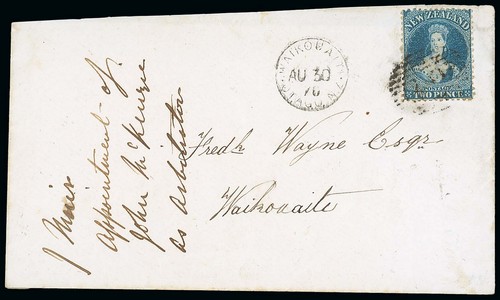 NEW ZEALAND
POSTAGE
TWO PENCE
WAIKOUAITI
AU 30
70
OTAGO N.Z
Fredk Wayne Esqr
Waikouaite
appointment of
John McKenzie
as arbitrator